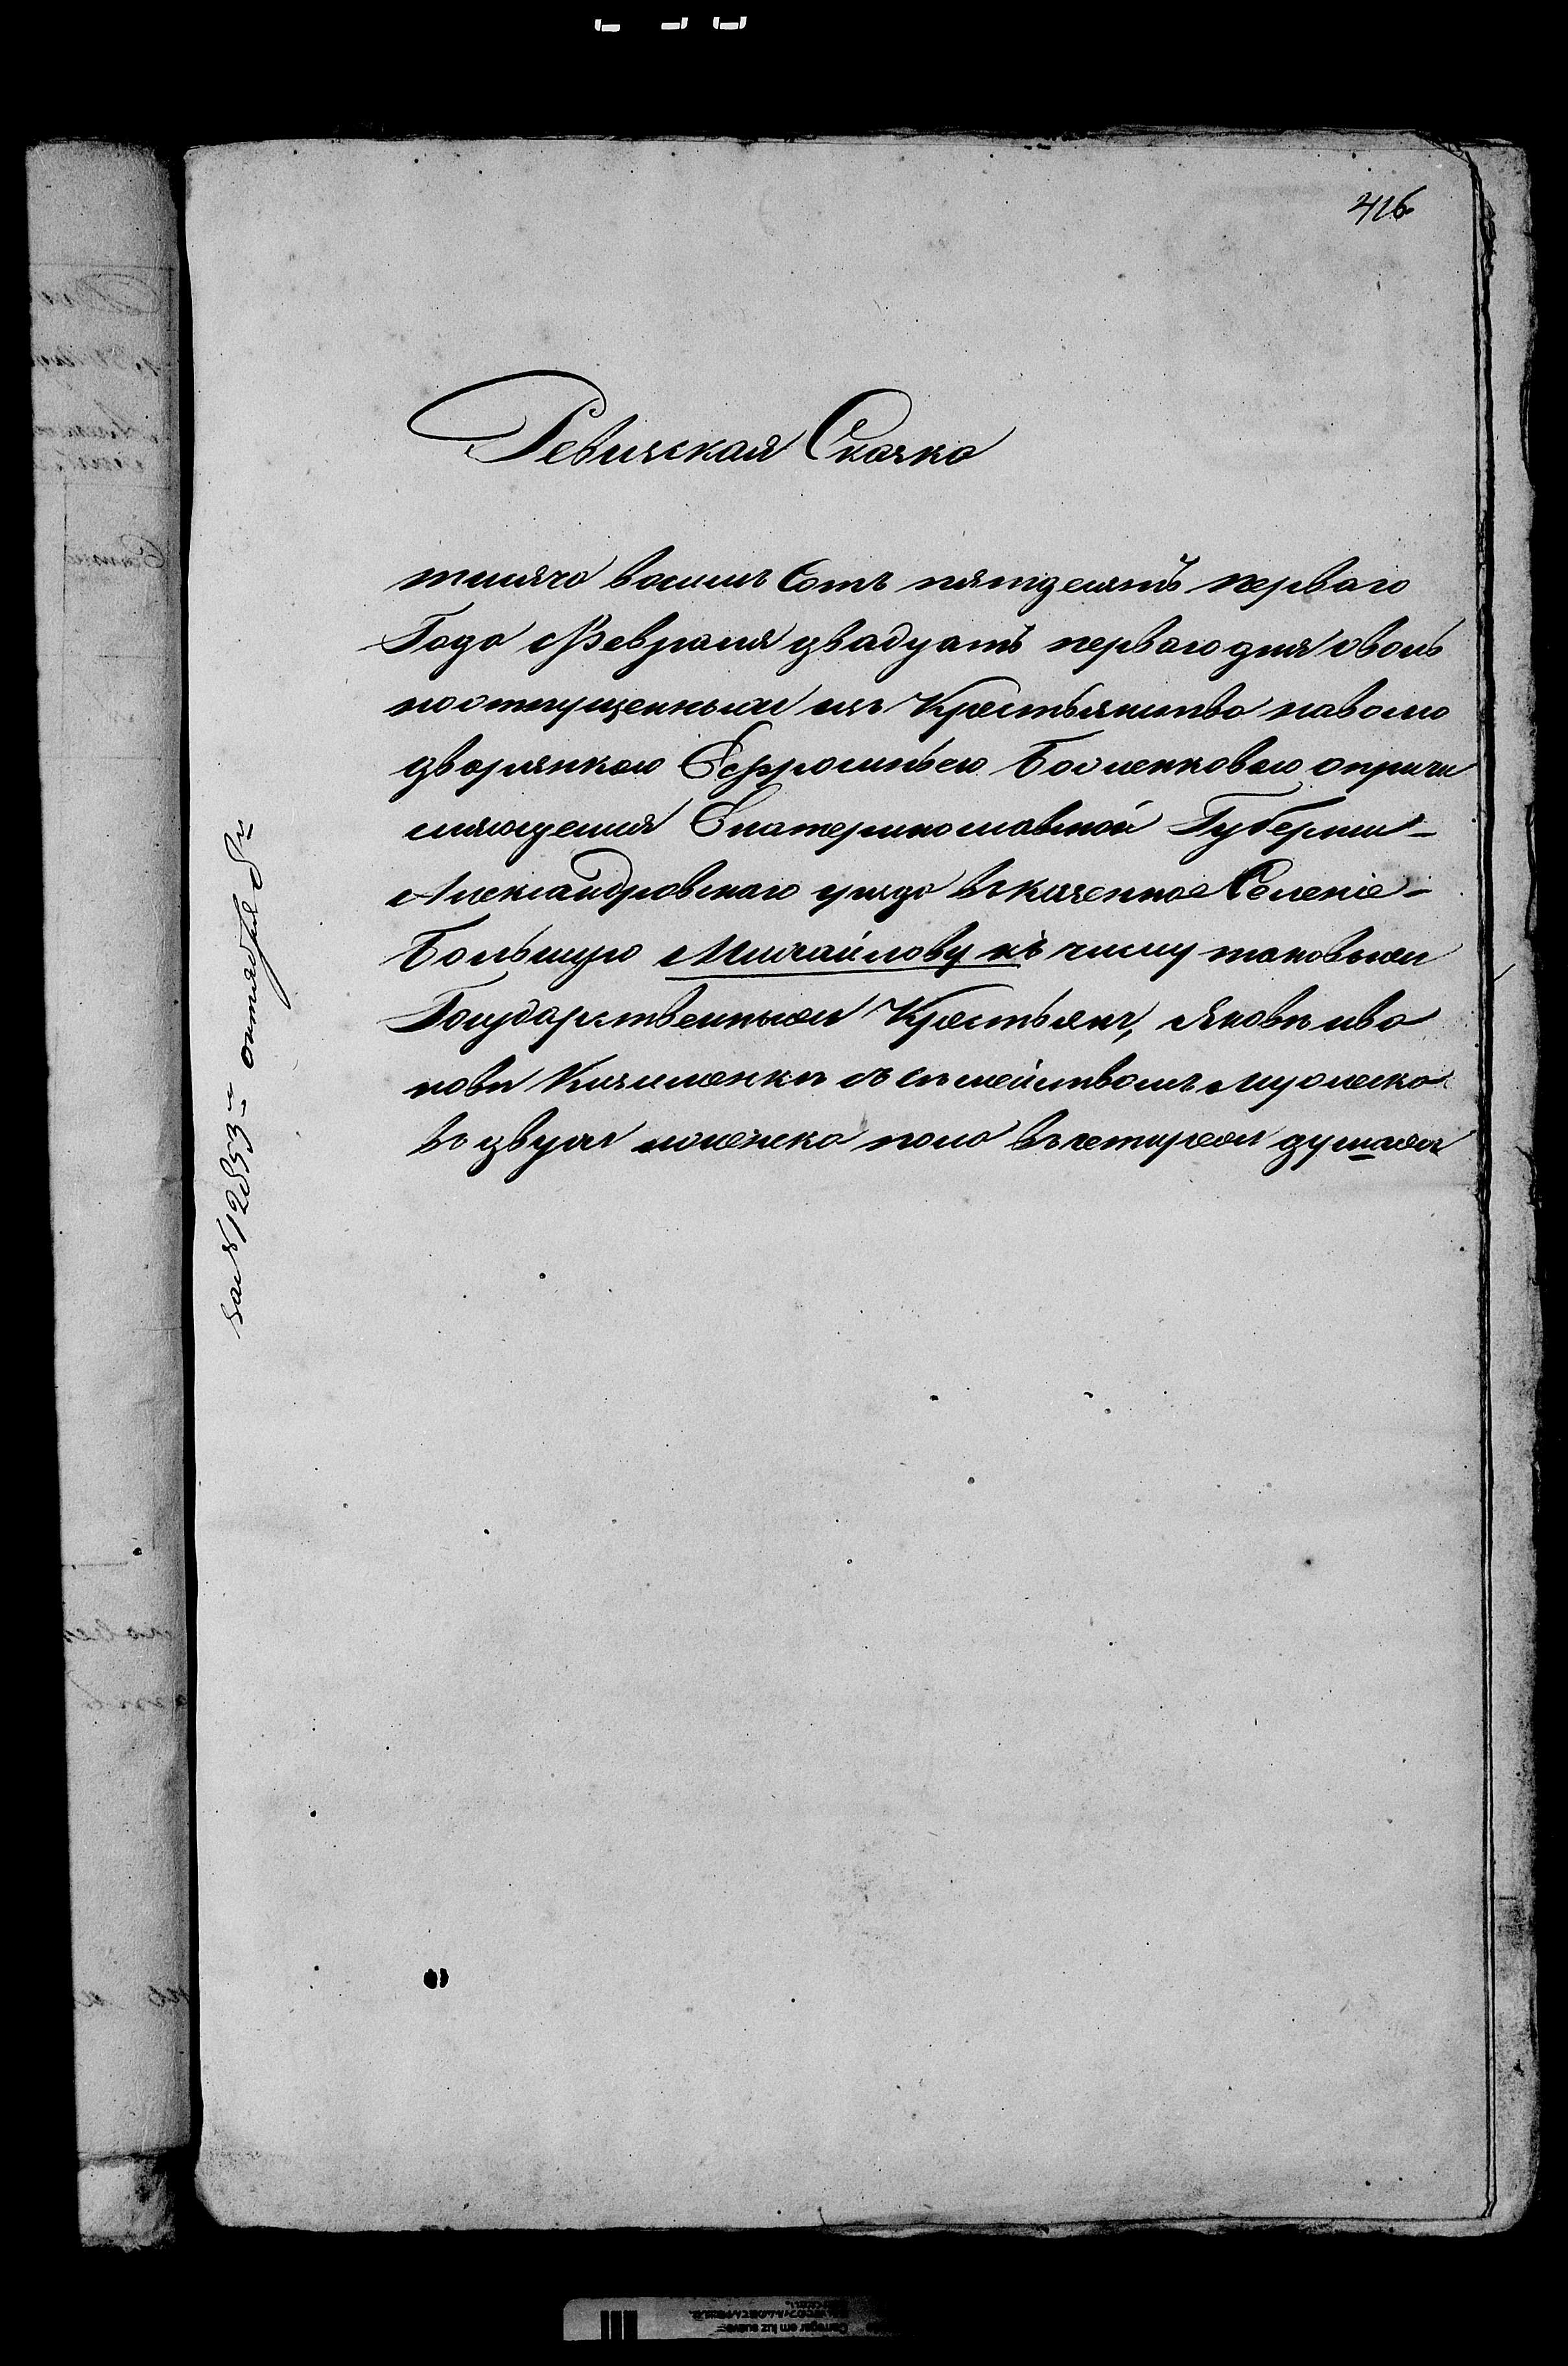 416
Ревизская Сказка
тысяча восимъ Сотъ пятдесятъ перваго
Года Февраля двадцать перваго дня о вольно
поотпущенныхъ изъ Крестьянства наволю
дворянкою Ефросиньею причи
сляющемся Екатеринославской Губерніи
Александровскаго уезда въ казенное Селеніе
Большую Михайловку къ числу таковыхъ
Государственныхъ Крестьянъ, Якове ива
нове съ семействомъ мужеска
въ двухъ и женска пола въ четырехъ душахъ
октября 8го